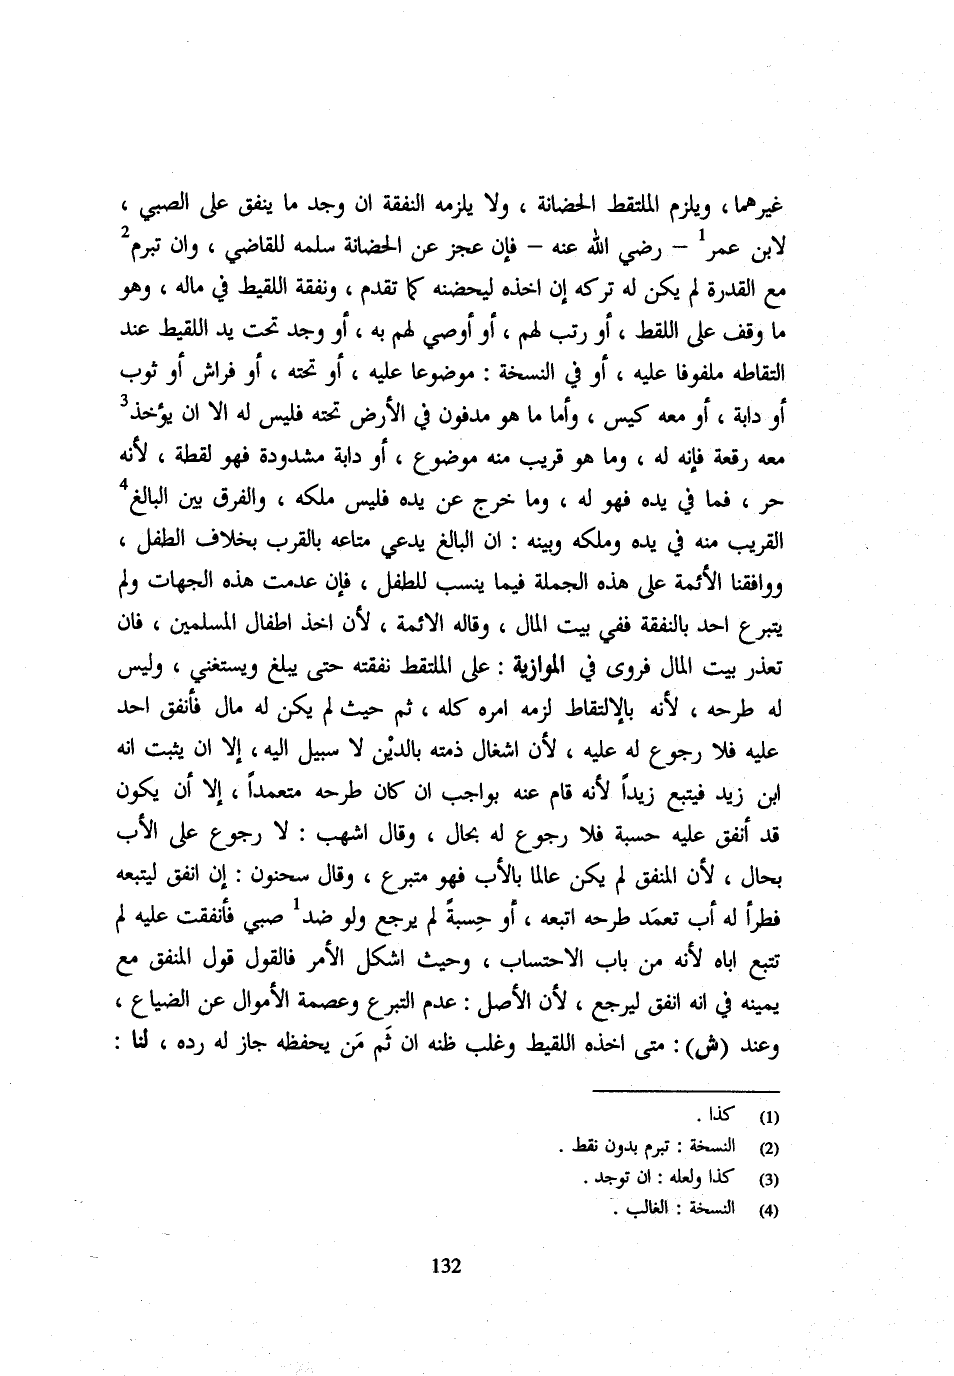 غيرهما ، ويلزم الملتقط الحضانة ، ولا يلزمه النفقة ان وجد ما ينفق على الصبي ،
لابن عمر1 – رضي الله عنه – فإن عجز عن الحضانة سلمه للقاضي ، وان تبرم2
مع القدرة لم يكن له تركه إن اخذه ليحضنه كما تقدم ، ونفقة اللقيط في ماله ، وهو
ما وقف على اللقط ، أو رتب لهم ، أو أوصي لهم به ، أو وجد تحت يد اللقيط عند
التقاطه ملفوفا عليه ، أو في النسخة : موضوعا عليه ، أو تحته ، أو فراش أو ثوب
أو دابة ، أو معه كيس ، وأما ما هو مدفون في الأرض تحته فليس له الا ان يؤخذ3
معه رقعة فإنه له ، وما هو قريب منه موضوع ، أو دابة مشدودة فهو لقطة ، لأنه
حر ، فما في يده فهو له ، وما خرج عن يده فليس ملكه ، والفرق بين البالغ4
القريب منه في يده وملكه وبينه : ان البالغ يدعي متاعه بالقرب بخلاف الطفل ،
ووافقنا الأئمة على هذه الجملة فيما ينسب للطفل ، فإن عدمت هذه الجهات ولم
يتبرع احد بالنفقة ففي بيت المال ، وقاله الائمة ، لأن اخذ اطفال المسلمين ، فان
تعذر بيت المال فروى في الموازية : على الملتقط نفقته حتى يبلغ ويستغني ، وليس
له طرحه ، لأنه بالإلتقاط لزمه امره كله ، ثم حيث لم يكن له مال فأنفق احد
عليه فلا رجوع له عليه ، لأن اشغال ذمته بالديْن لا سبيل اليه ، إلا ان يثبت انه
ابن زيد فيتبع زيداً لأنه قام عنه بواجب ان كان طرحه متعمداً ، إلا أن يكون
قد أنفق عليه حسبة فلا رجوع له بحال ، وقال اشهب : لا رجوع على الأب
بحال ، لأن المنفق لم يكن عالما بالأب فهو متبرع ، وقال سحنون : إن انفق ليتبعه
فطرأ له أب تعمَد طرحه اتبعه ، أو حِسبةً لم يرجع ولو ضد1 صبي فأنفقت عليه لم
تتبع اباه لأنه من باب الاحتساب ، وحيث اشكل الأمر فالقول قول المنفق مع
يمينه في انه انفق ليرجع ، لأن الأصل : عدم التبرع وعصمة الأموال عن الضياع ،
وعند (ش) : متى اخذه اللقيط وغلب ظنه ان ثَم مَن يحفظه جاز له رده ، لنا :
(1) كذا .
(2) النسخة : تبرم بدون نقط .
(3) كذا ولعله : ان توجد .
(4) النسخة : الغالب .
132